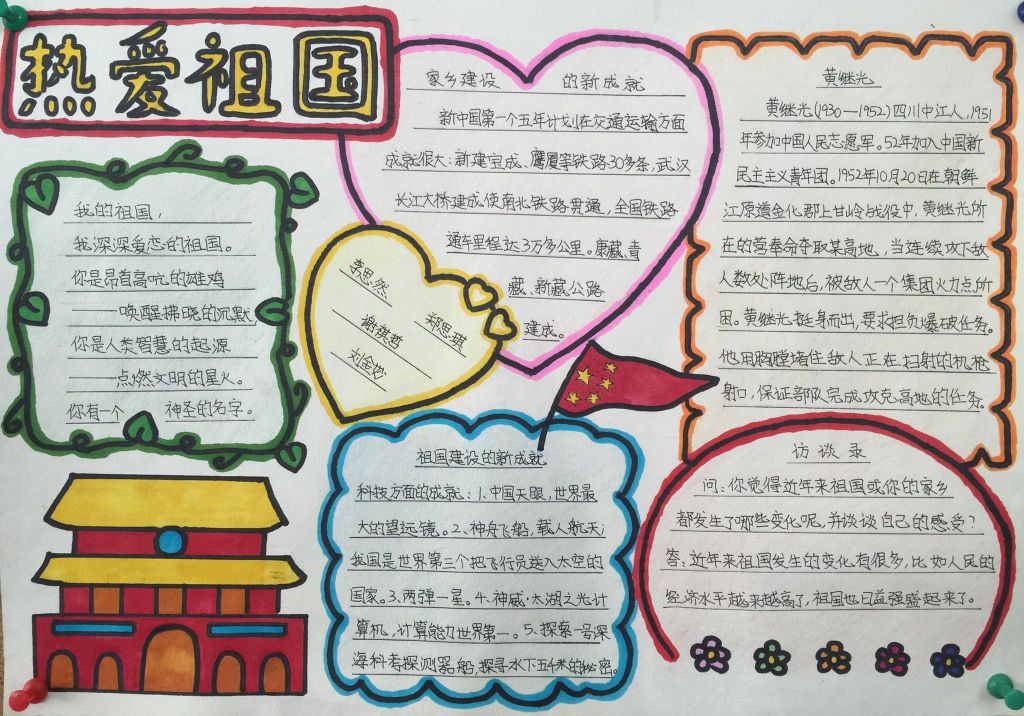 热爱祖国
我的祖国，
我深深爱恋的祖国。
你是昂首高吭的雄鸡
——唤醒拂晓的沉默
你是人类智慧的起源
——点燃文明的星火。
你有一个 神圣的名字。
家乡建设 的新成就
新中国第一个五年计划在交通运输方面
成就很大：新建宝成、鹰厦等铁路30多条，武汉
长江大桥建成使南北铁路贯通，全国铁路
通车里程达3万多公里。康藏、青
藏、新藏公路
建成。
李思然
谢祺哲
郑思琪
刘金妙
黄继光
黄继光(1930—1952)四川中江人，1951
年参加中国人民志愿军。52年加入中国新
民主主义青年团。1952年10月20日在朝鲜
江原道金化郡上甘岭战役中，黄继光所
在的营奉命夺取某高地，当连续攻下敌
人数处阵地后，被敌人一个集团火力点所
困。黄继光挺身而出，要求担负爆破任务。
他用胸膛堵住敌人正在扫射的机枪
射口，保证部队完成攻克高地的任务。
祖国建设的新成就
科技方面的成就：1.中国天眼，世界最
大的望远镜。2.神舟飞船，载人航天；
我国是世界第三个把飞行员送入太空的
国家。3.两弹一星。4.神威·太湖之光计
算机，计算能力世界第一。5.探索一号深
海科考探测器船，探寻水下五千米的秘密。
访谈录
问：你觉得近年来祖国或你的家乡
都发生了哪些变化呢，并谈谈自己的感受？
答：近年来祖国发生的变化有很多，比如人民的
经济水平越来越高了，祖国也日益强盛起来了。